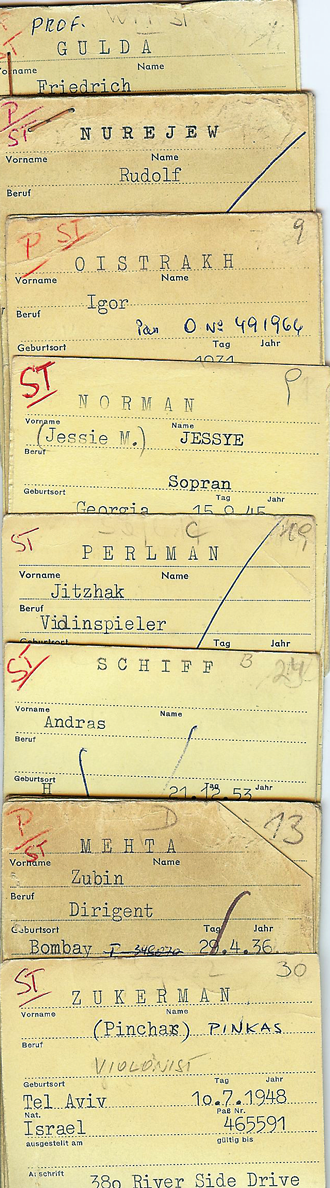 PROF.
ST
GULDA
Vorname Name
Friedrich
P
ST
NUREJEW
Vorname Name
Rudolf
Beruf
P ST 9
OISTRAKH
Vorname Name
Igor
Beruf
Pass O No 491964
Geburtsort Tag Jahr
1931
ST 9
NORMAN
Vorname Name
(Jessie M.) JESSYE
Beruf
Sopran
Geburtsort Tag Jahr
Georgia 15.9.45
ST C 19
PERLMAN
Vorname Name
Jitzhak
Beruf
Vidinspieler
Geburtsort Tag Jahr
ST B 24
SCHIFF
Vorname Name
Andras
Beruf
Geburtsort Tag Jahr
H 21.12.53
P
ST D 13
MEHTA
Vorname Name
Zubin
Beruf
Dirigent
Geburtsort Tag Jahr
Bombay 29.4.36.
ST 30
ZUKERMAN
Vorname Name
(Pinchas) PINKAS
Beruf
VIOLONIST
Geburtsort Tag Jahr
Tel Aviv 10.7.1948
Nat. Paß Nr.
Israel 465591
ausgestellt am gültig bis
Anschrift
380 River Side Drive